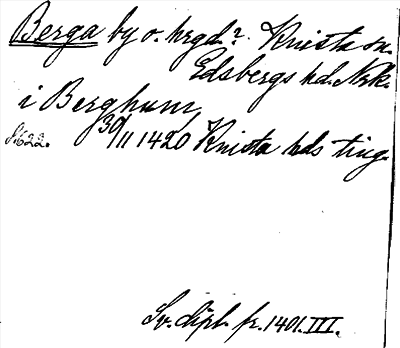 Berga by o. hrgd.? Knista sn.
Edsbergs hd. Nrk.
i Berghum
30/11 1420 Knista hds ting.
S. 622.
Sv. dipl. fr. 1401. III.